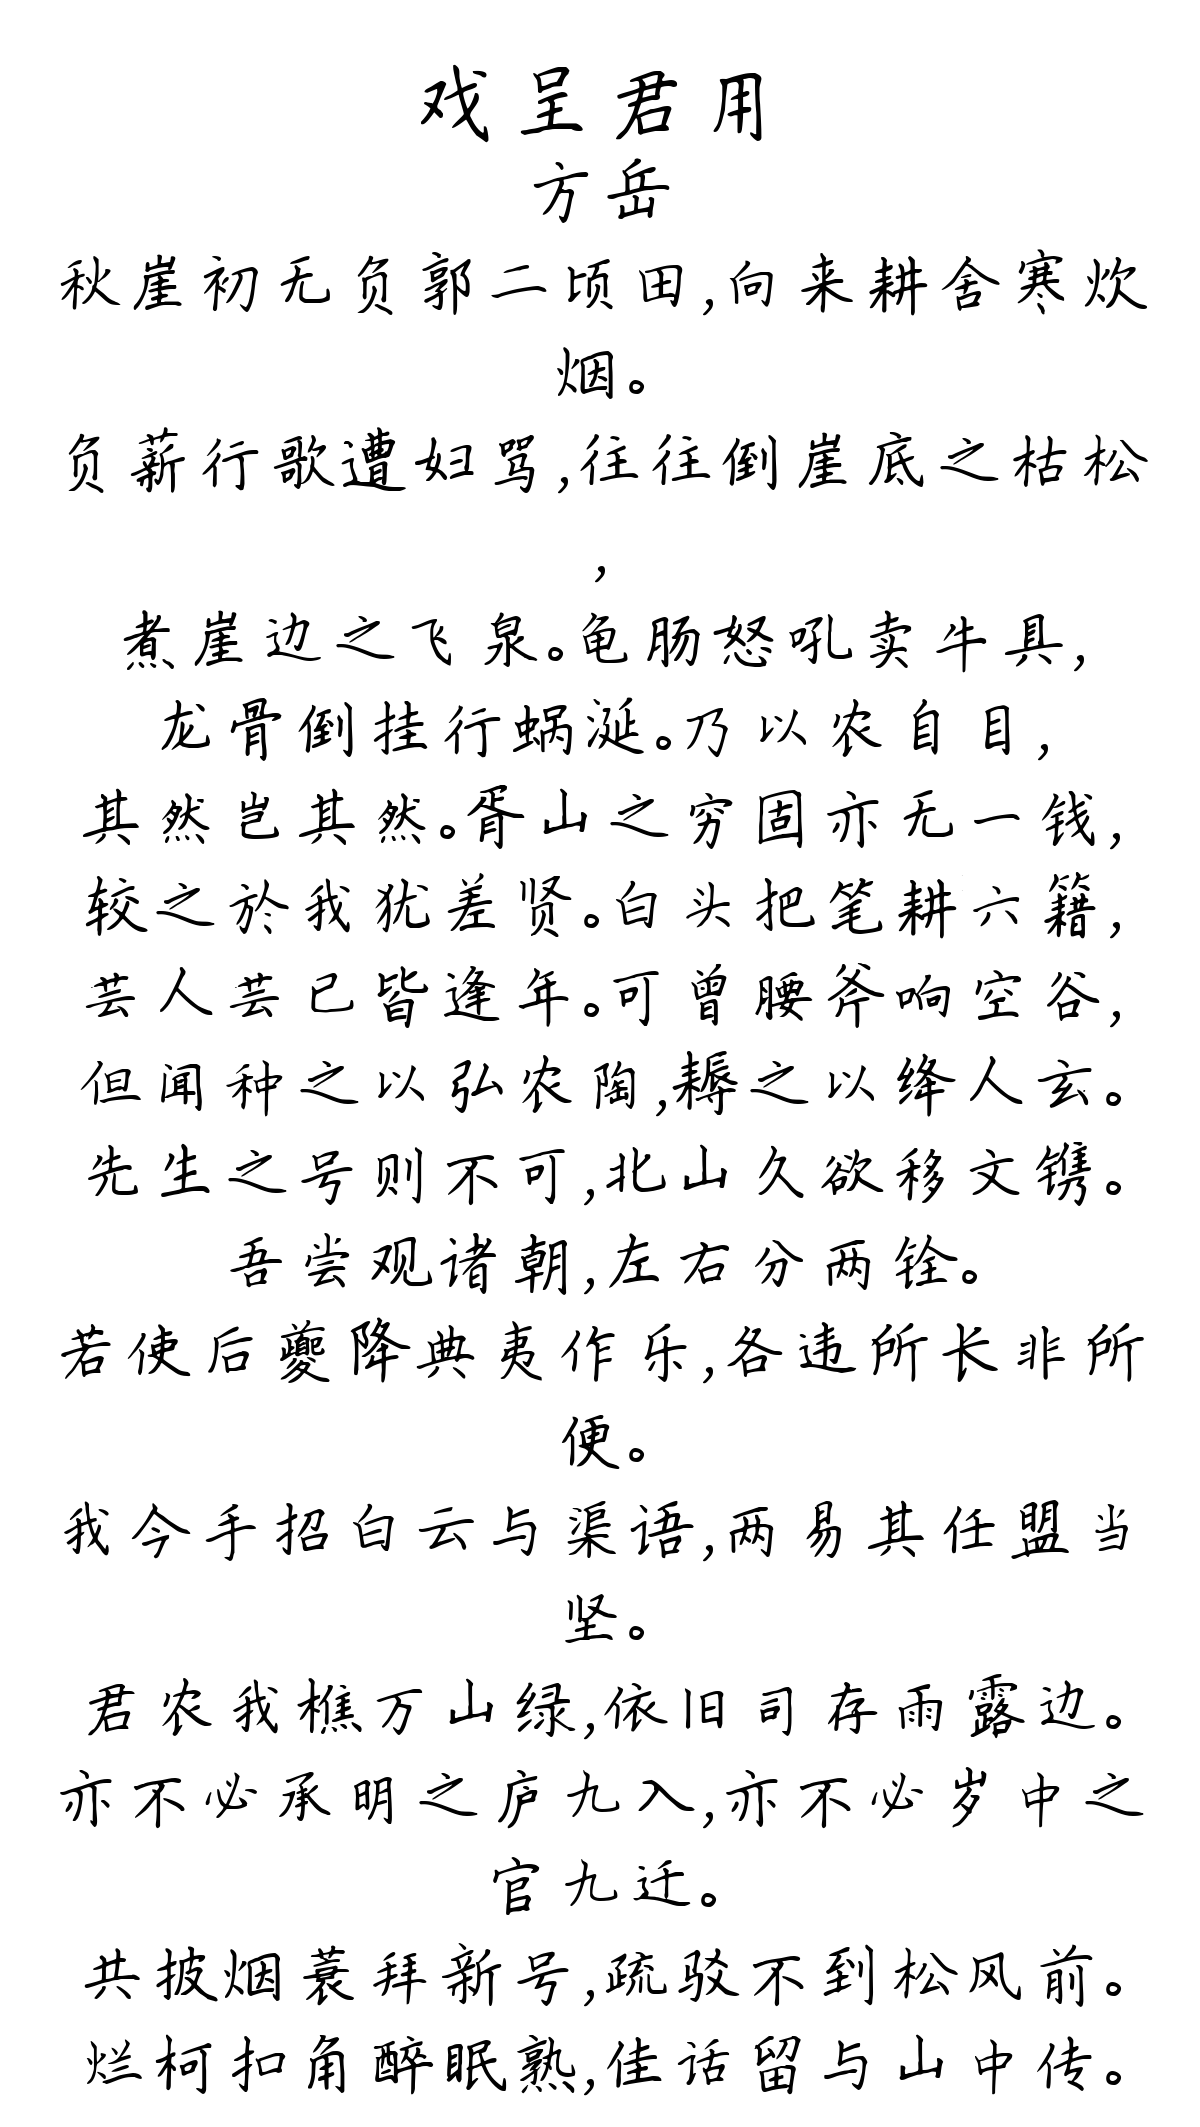 戏呈君用
方岳
秋崖初无负郭二顷田,向来耕舍寒炊
烟。
负薪行歌遭妇骂,往往倒崖底之枯松
,
煮崖边之飞泉。龟肠怒吼卖牛具,
龙骨倒挂行蜗涎。乃以农自目,
其然岂其然。胥山之穷固亦无一钱,
较之於我犹差贤。白头把笔耕六籍,
芸人芸已皆逢年。可曾腰斧响空谷,
但闻种之以弘农陶,耨之以绛人玄。
先生之号则不可,北山久欲移文镌。
吾尝观诸朝,左右分两铨。
若使后夔降典夷作乐,各违所长非所
便。
我今手招白云与渠语,两易其任盟当
坚。
君农我樵万山绿,依旧司存雨露边。
亦不必承明之庐九入,亦不必岁中之
官九迁。
共披烟蓑拜新号,疏驳不到松风前。
烂柯扣角醉眠熟,佳话留与山中传。